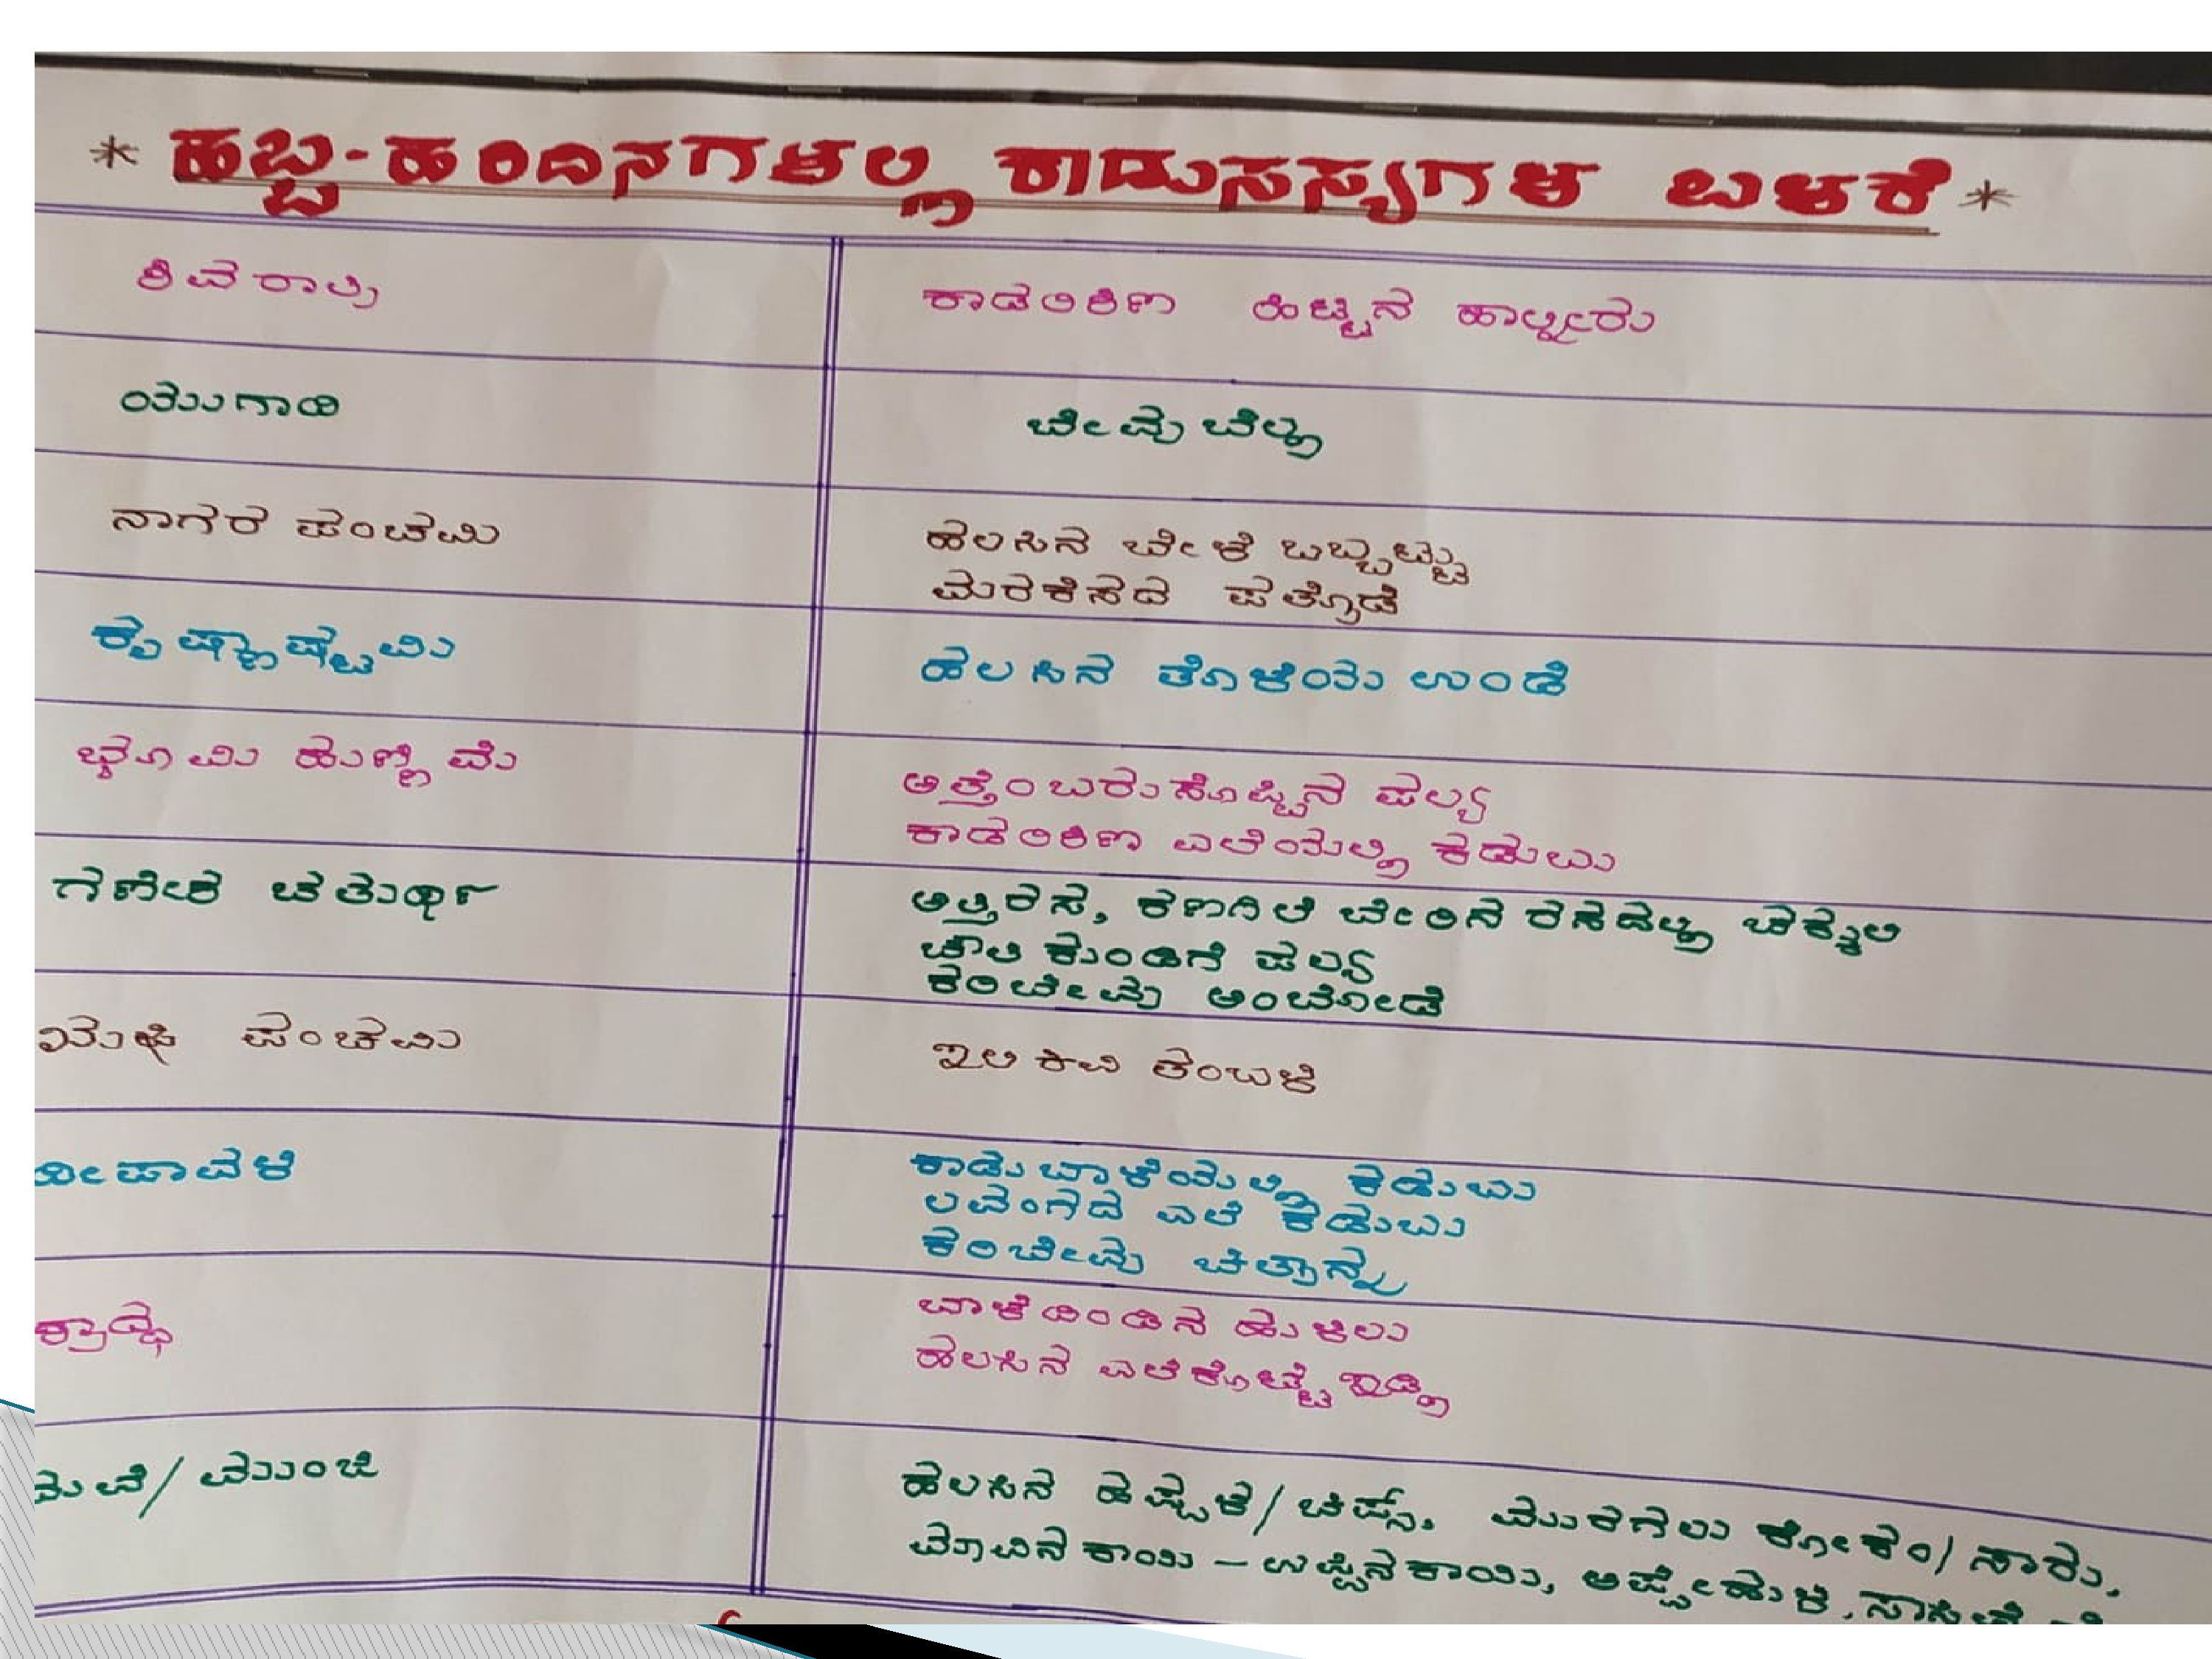 * ಹಬ್ಬ-ಹರಿದಿನಗಳಲ್ಲಿ ಕಾಡುಸಸ್ಯಗಳ ಬಳಕೆ *
ಶಿವರಾತ್ರಿ
ಕಾಡಅರಿಶಿಣ ಹಿಟ್ಟಿನ ಹಾಲ್ನೀರು
ಯುಗಾದಿ
ಬೇವು ಬೆಲ್ಲ
ನಾಗರ ಪಂಚಮಿ
ಹಲಸಿನ ಬೇಳೆ ಒಬ್ಬಟ್ಟು
ಮರಕೆಸದ ಪತ್ರೊಡೆ
ಕೃಷ್ಣಾಷ್ಟಮಿ
ಹಲಸಿನ ತೊಳೆಯ ಉಂಡೆ
ಭೂಮಿ ಹುಣ್ಣಿಮೆ
ಅತ್ತೆಂಬರುಸೊಪ್ಪಿನ ಪಲ್ಯ
ಕಾಡಅರಿಶಿಣ ಎಲೆಯಲ್ಲಿ ಕಡುಬು
ಗಣೇಶ ಚತುರ್ಥಿ
ಅತ್ತಿರಸ, ಕಣಗಿಲೆ ಬೇರಿನ ರಸದಲ್ಲಿ ಚಕ್ಕುಲಿ
ಕುಂಡಿಗೆ ಪಲ್ಯ
ಕರಿಬೇವು ಅಂಬೋಡೆ
ಪಂಚಮಿ
ಇಲಿಕಿವಿ ತಂಬಳಿ
ದೀಪಾವಳಿ
ಕಾಡು ಬಾಳೆಯಲ್ಲಿ ಕಡುಬು
ಲವಂಗದ ಎಲೆ ಕಡುಬು
ಕರಿಬೇವು ಚಿತ್ರಾನ್ನ
ಶ್ರಾದ್ಧ
ಬಾಳೆದಿಂಡಿನ ಹುಳಿ
ಹಲಸಿನ ಎಲೆಕೊಟ್ಟೆ ಇಡ್ಲಿ
ಮದುವೆ/ ಮುಂಜಿ
ಹಲಸಿನ ಹಪ್ಪಳ/ ಚಿಪ್ಸ್, ಮುರುಗಲು ಕೋಕಂ/ ಸಾರು,
ಮಾವಿನಕಾಯಿ – ಉಪ್ಪಿನಕಾಯಿ, ಅಪ್ಪೇಹುಳಿ,